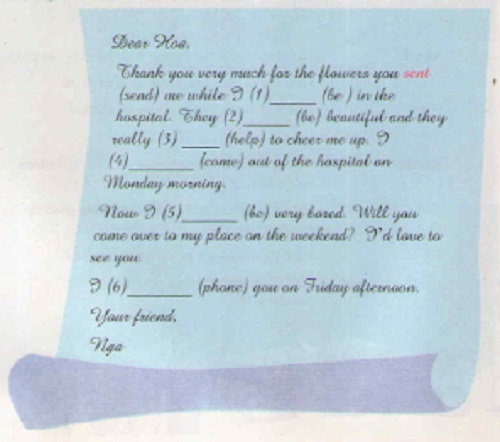 Dear Hoa,
Thank you very much for the flowers you sent
(send) me while I (1)______ (be ) in the
hospital. They (2)______ (be) beautiful and they
really (3) _____ (help) to cheer me up. I
(4)_________ (come) out of the hospital on
Monday morning.
Now I (5)_______ (be) very bored. Will you
come over to my place on the weekend? I'd love to
see you.
I (6)_________ (phone) you on Friday afternoon.
Your friend,
Nga